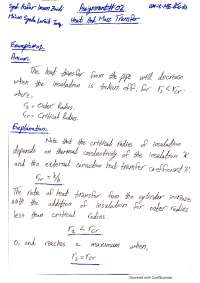 Syed Asfar Imam Zaidi Assignment#02
Heat And Mass Transfer
Example#02
Answer:
The heat transfer from the pipe will decrease
when the insulation is taken off, for r₂ < rcr.
where,
r₂ = Outer Radius.
rcr = Critical Radius.
Explanation:
Note that the critical radius of insulation
depends on thermal conductivity of the insulation 'k'
and the external convection heat transfer coefficient 'h'
rcr = k/h
The rate of heat transfer from the cylinder increases
with the addition of insulation for outer radius
less than critical radius.
r₂ < rcr
and reaches a maximum when,
r₂ = rcr
Scanned with CamScanner